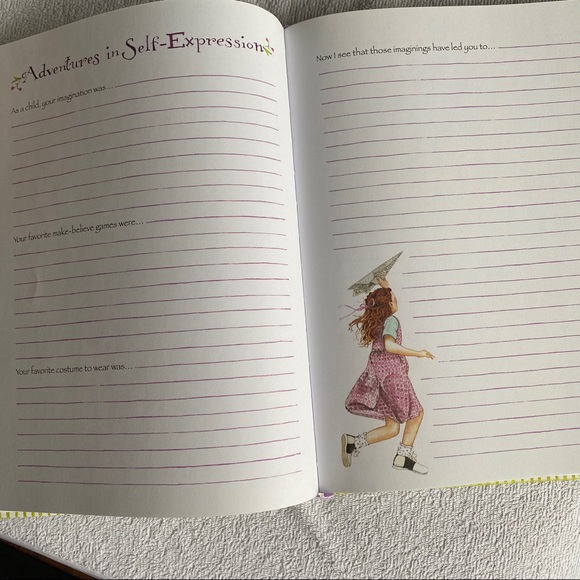 Adventures in Self-Expression
As a child, your imagination was...
Your favorite make-believe games were...
Your favorite costume to wear was...
Now I see that those imaginings have led you to...